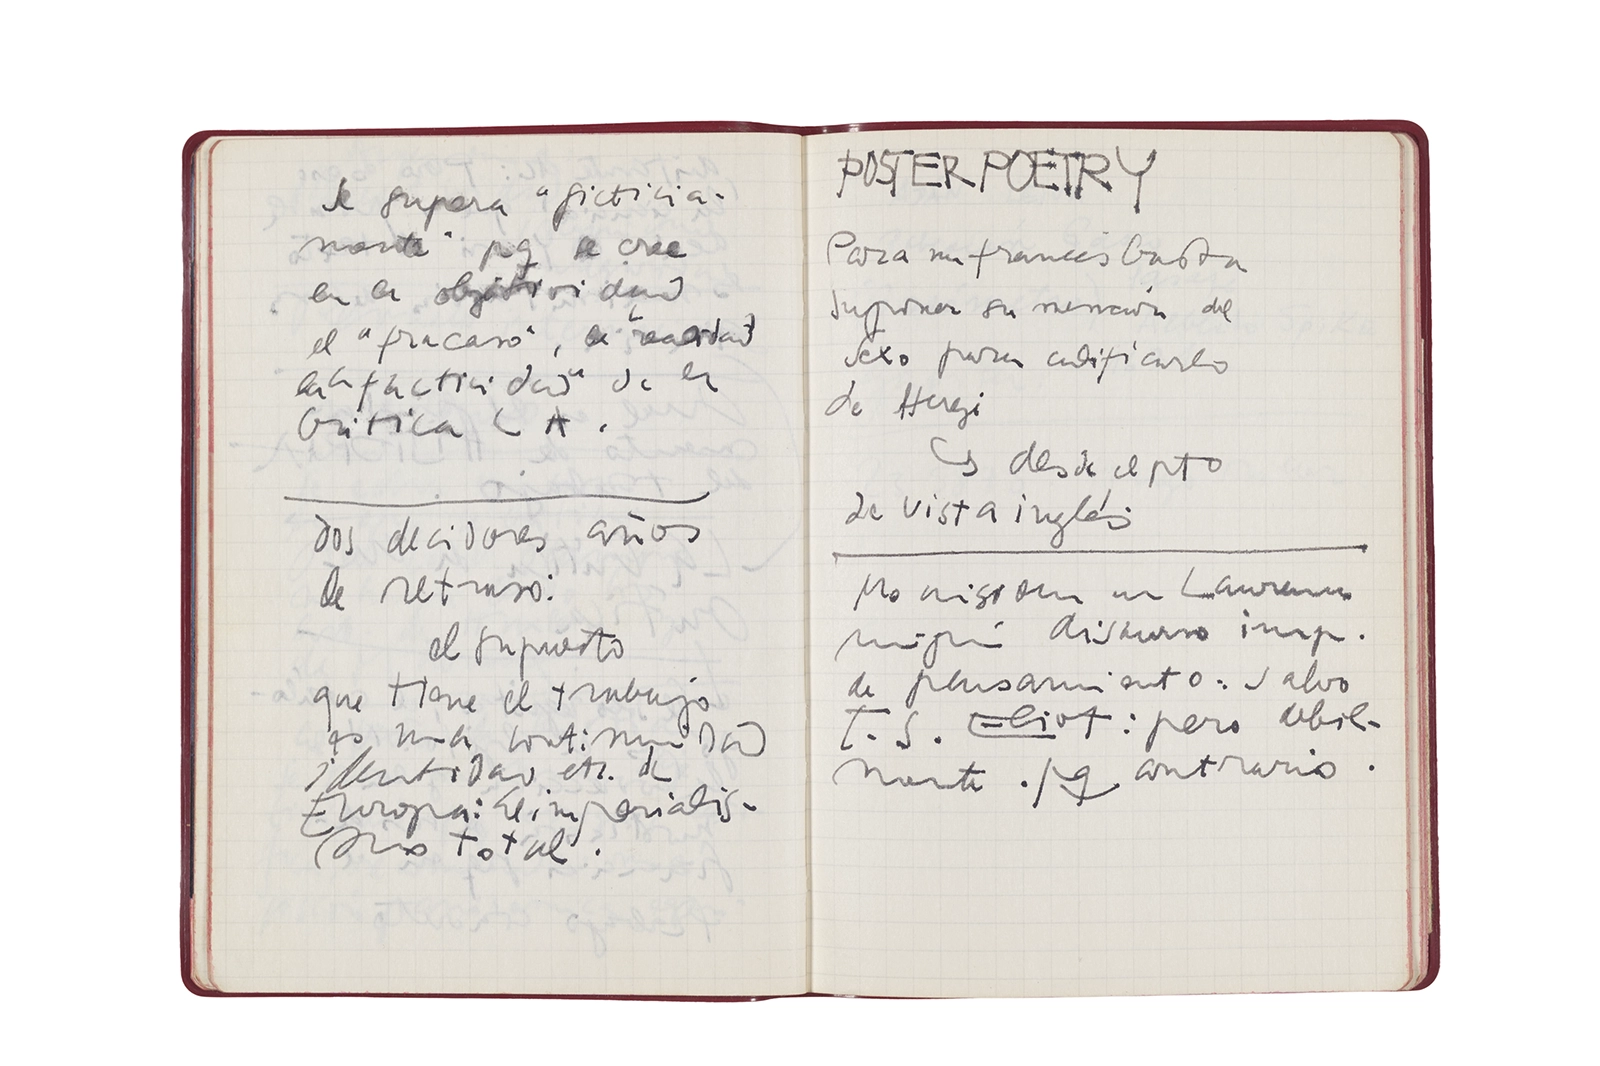 se supera "ficticia-
mente" pq se cree
en la objetividad
el "fracaso", la "realidad
la "facticidad" de la
Crítica L A.
dos decidores años
de retraso:
el supuesto
que tiene el trabajo
es una continuidad
identidad etc. de
Europa: El imperialis-
mo total.
POSTER POETRY
Para un francés basta
suponer su mención del
sexo para calificarlo
de
↳ desde el pto
de vista inglés
No en Lawrence
ningún discurso imp.
de pensamiento. salvo
T. S. Eliot: pero debil-
mente. pq contrario.